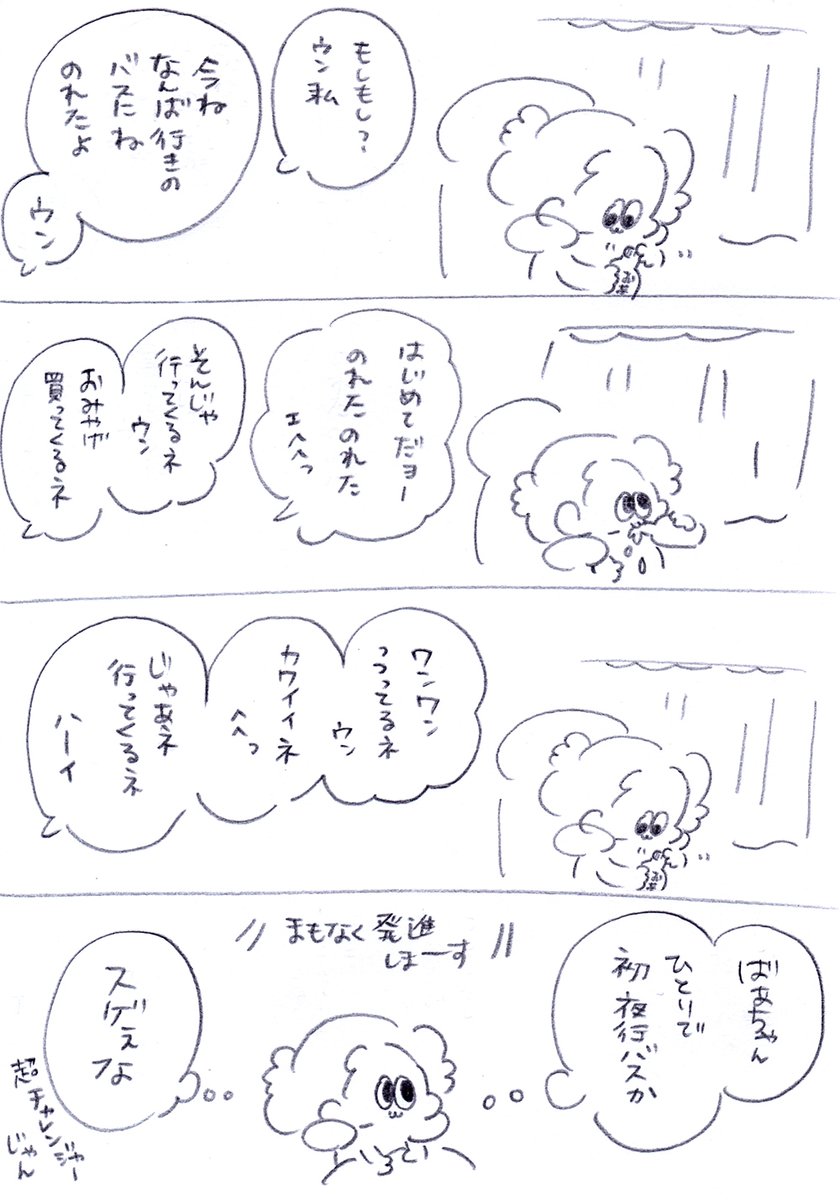 もしもし?
ウン 私
今ね
なんば行きの
バスにね
のれたよ
ウン
はじめてだヨー
のれたのれた
エヘヘっ
そんじゃ
行ってくるネ
ウン
おみやげ
買ってくるネ
ワンワン
っつってるネ
ウン
カワイイネ
へへっ
じゃあネ
行ってくるネ
ハーイ
まもなく発進
しまーす
ばあちゃん
ひとりで
初夜行バスか
スゲぇな
超チャレンジャー
じゃん